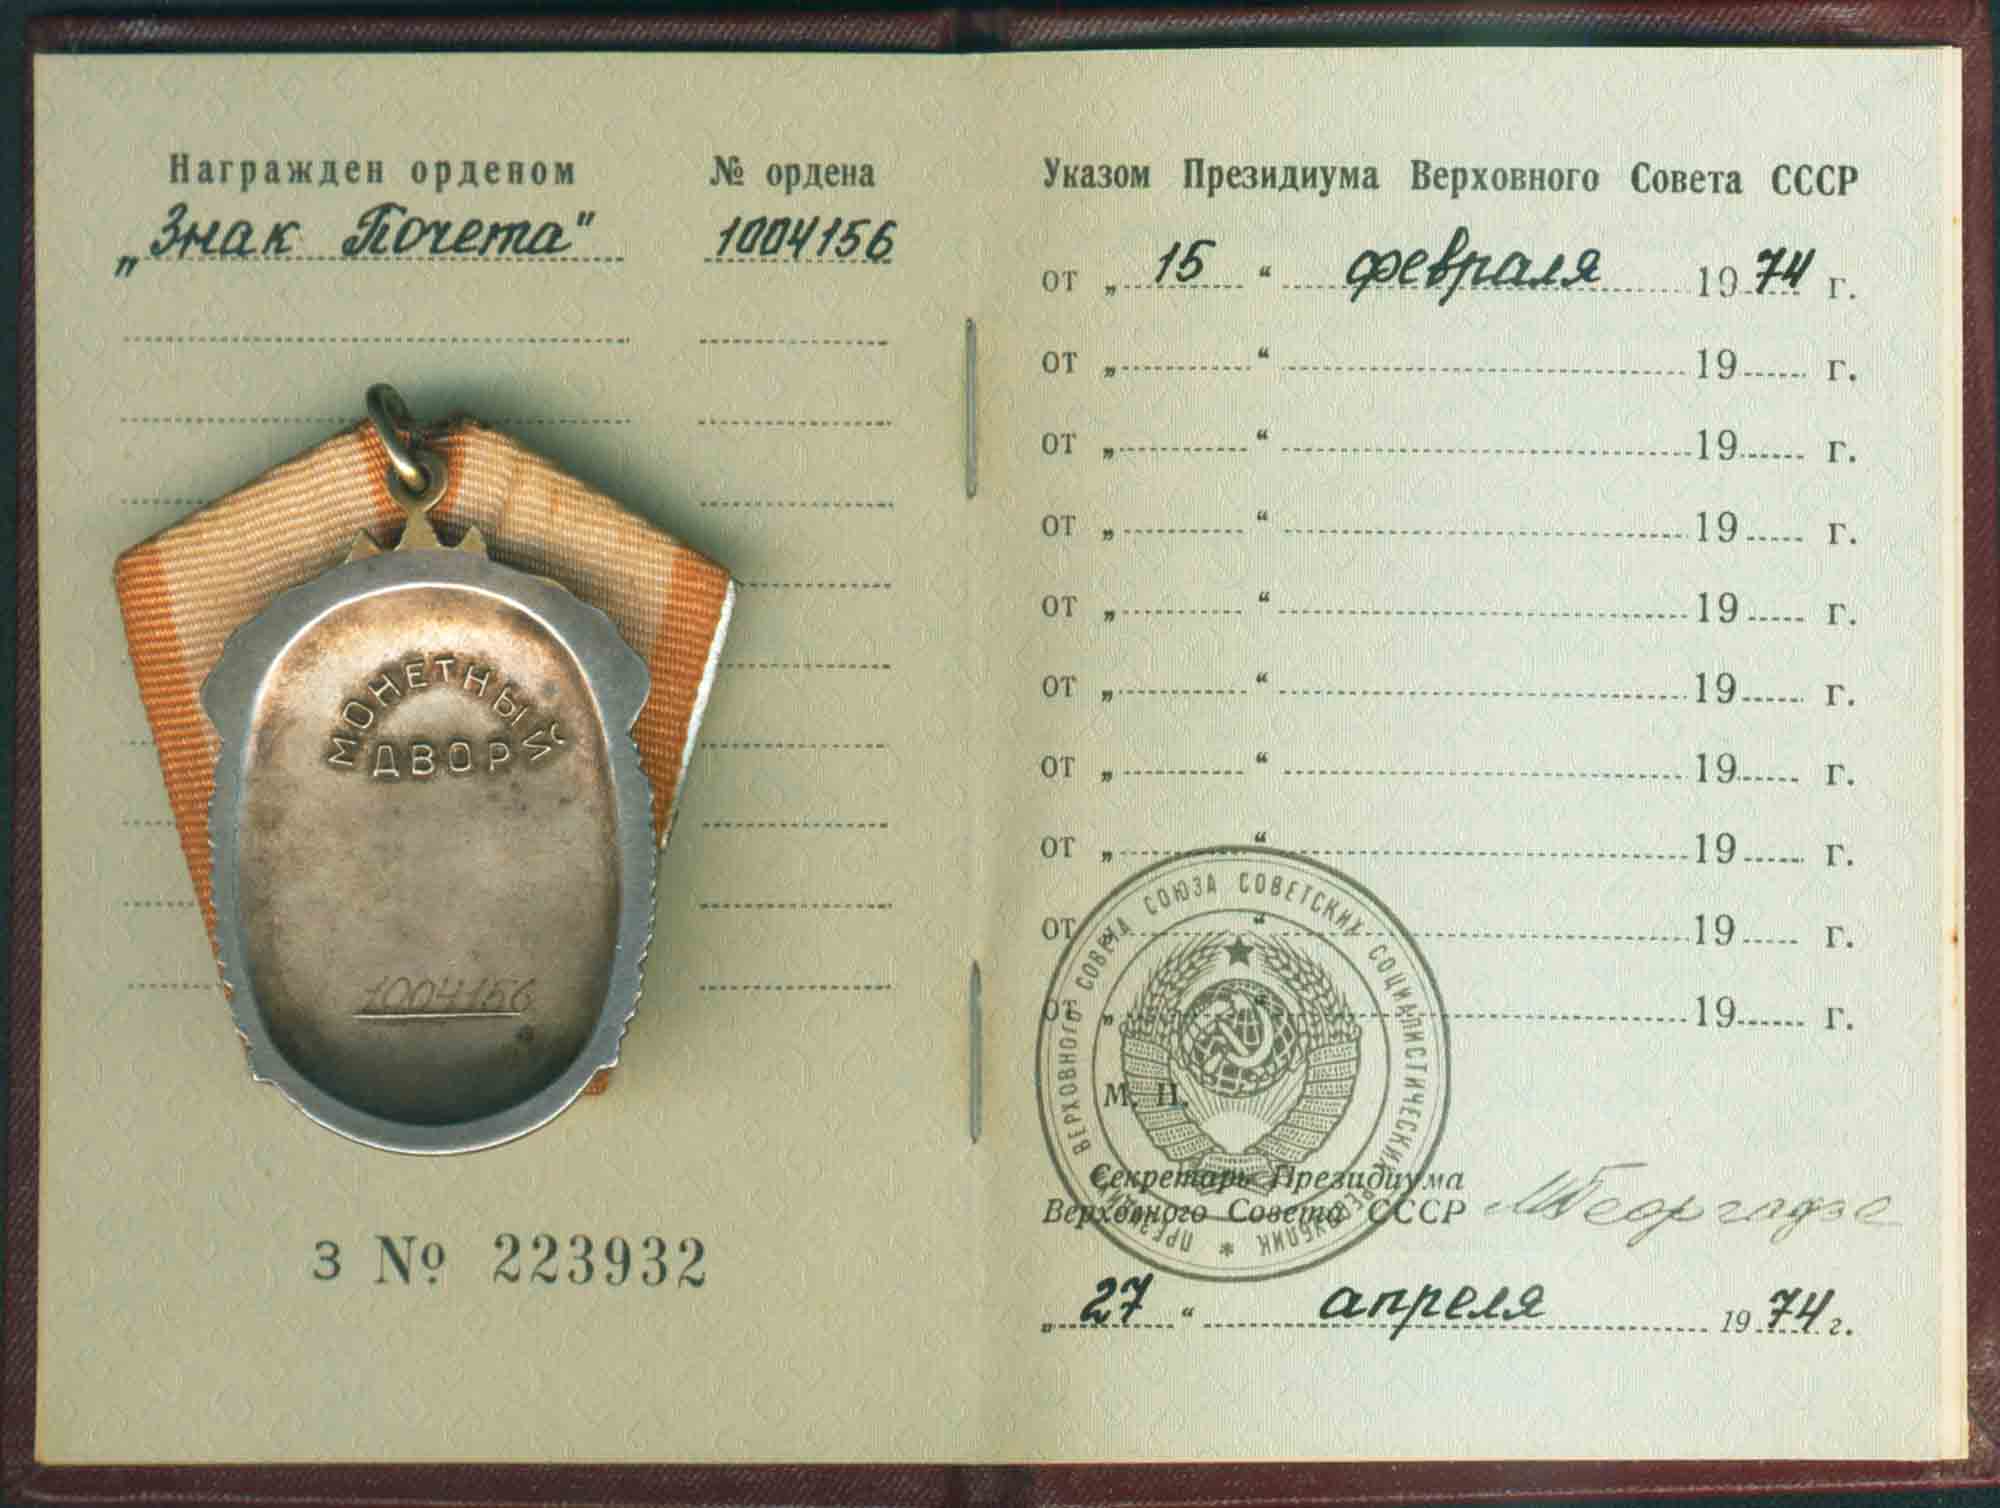 Награжден орденом № ордена
„Знак Почета" 1004156
МОНЕТНЫЙ
ДВОР
1004156
З № 223932
Указом Президиума Верховного Совета СССР
от „ 15 “ февраля 1974 г.
от „ “ 19 г.
от „ “ 19 г.
от „ “ 19 г.
от „ “ 19 г.
от „ “ 19 г.
от „ “ 19 г.
от „ “ 19 г.
от „ “ 19 г.
от „ “ 19 г.
ПРЕЗИДИУМ ВЕРХОВНОГО СОВЕТА СОЮЗА СОВЕТСКИХ СОЦИАЛИСТИЧЕСКИХ РЕСПУБЛИК *
М. П.
Секретарь Президиума
Верховного Совета СССР МГеоргадзе
„ 27 “ апреля 1974 г.